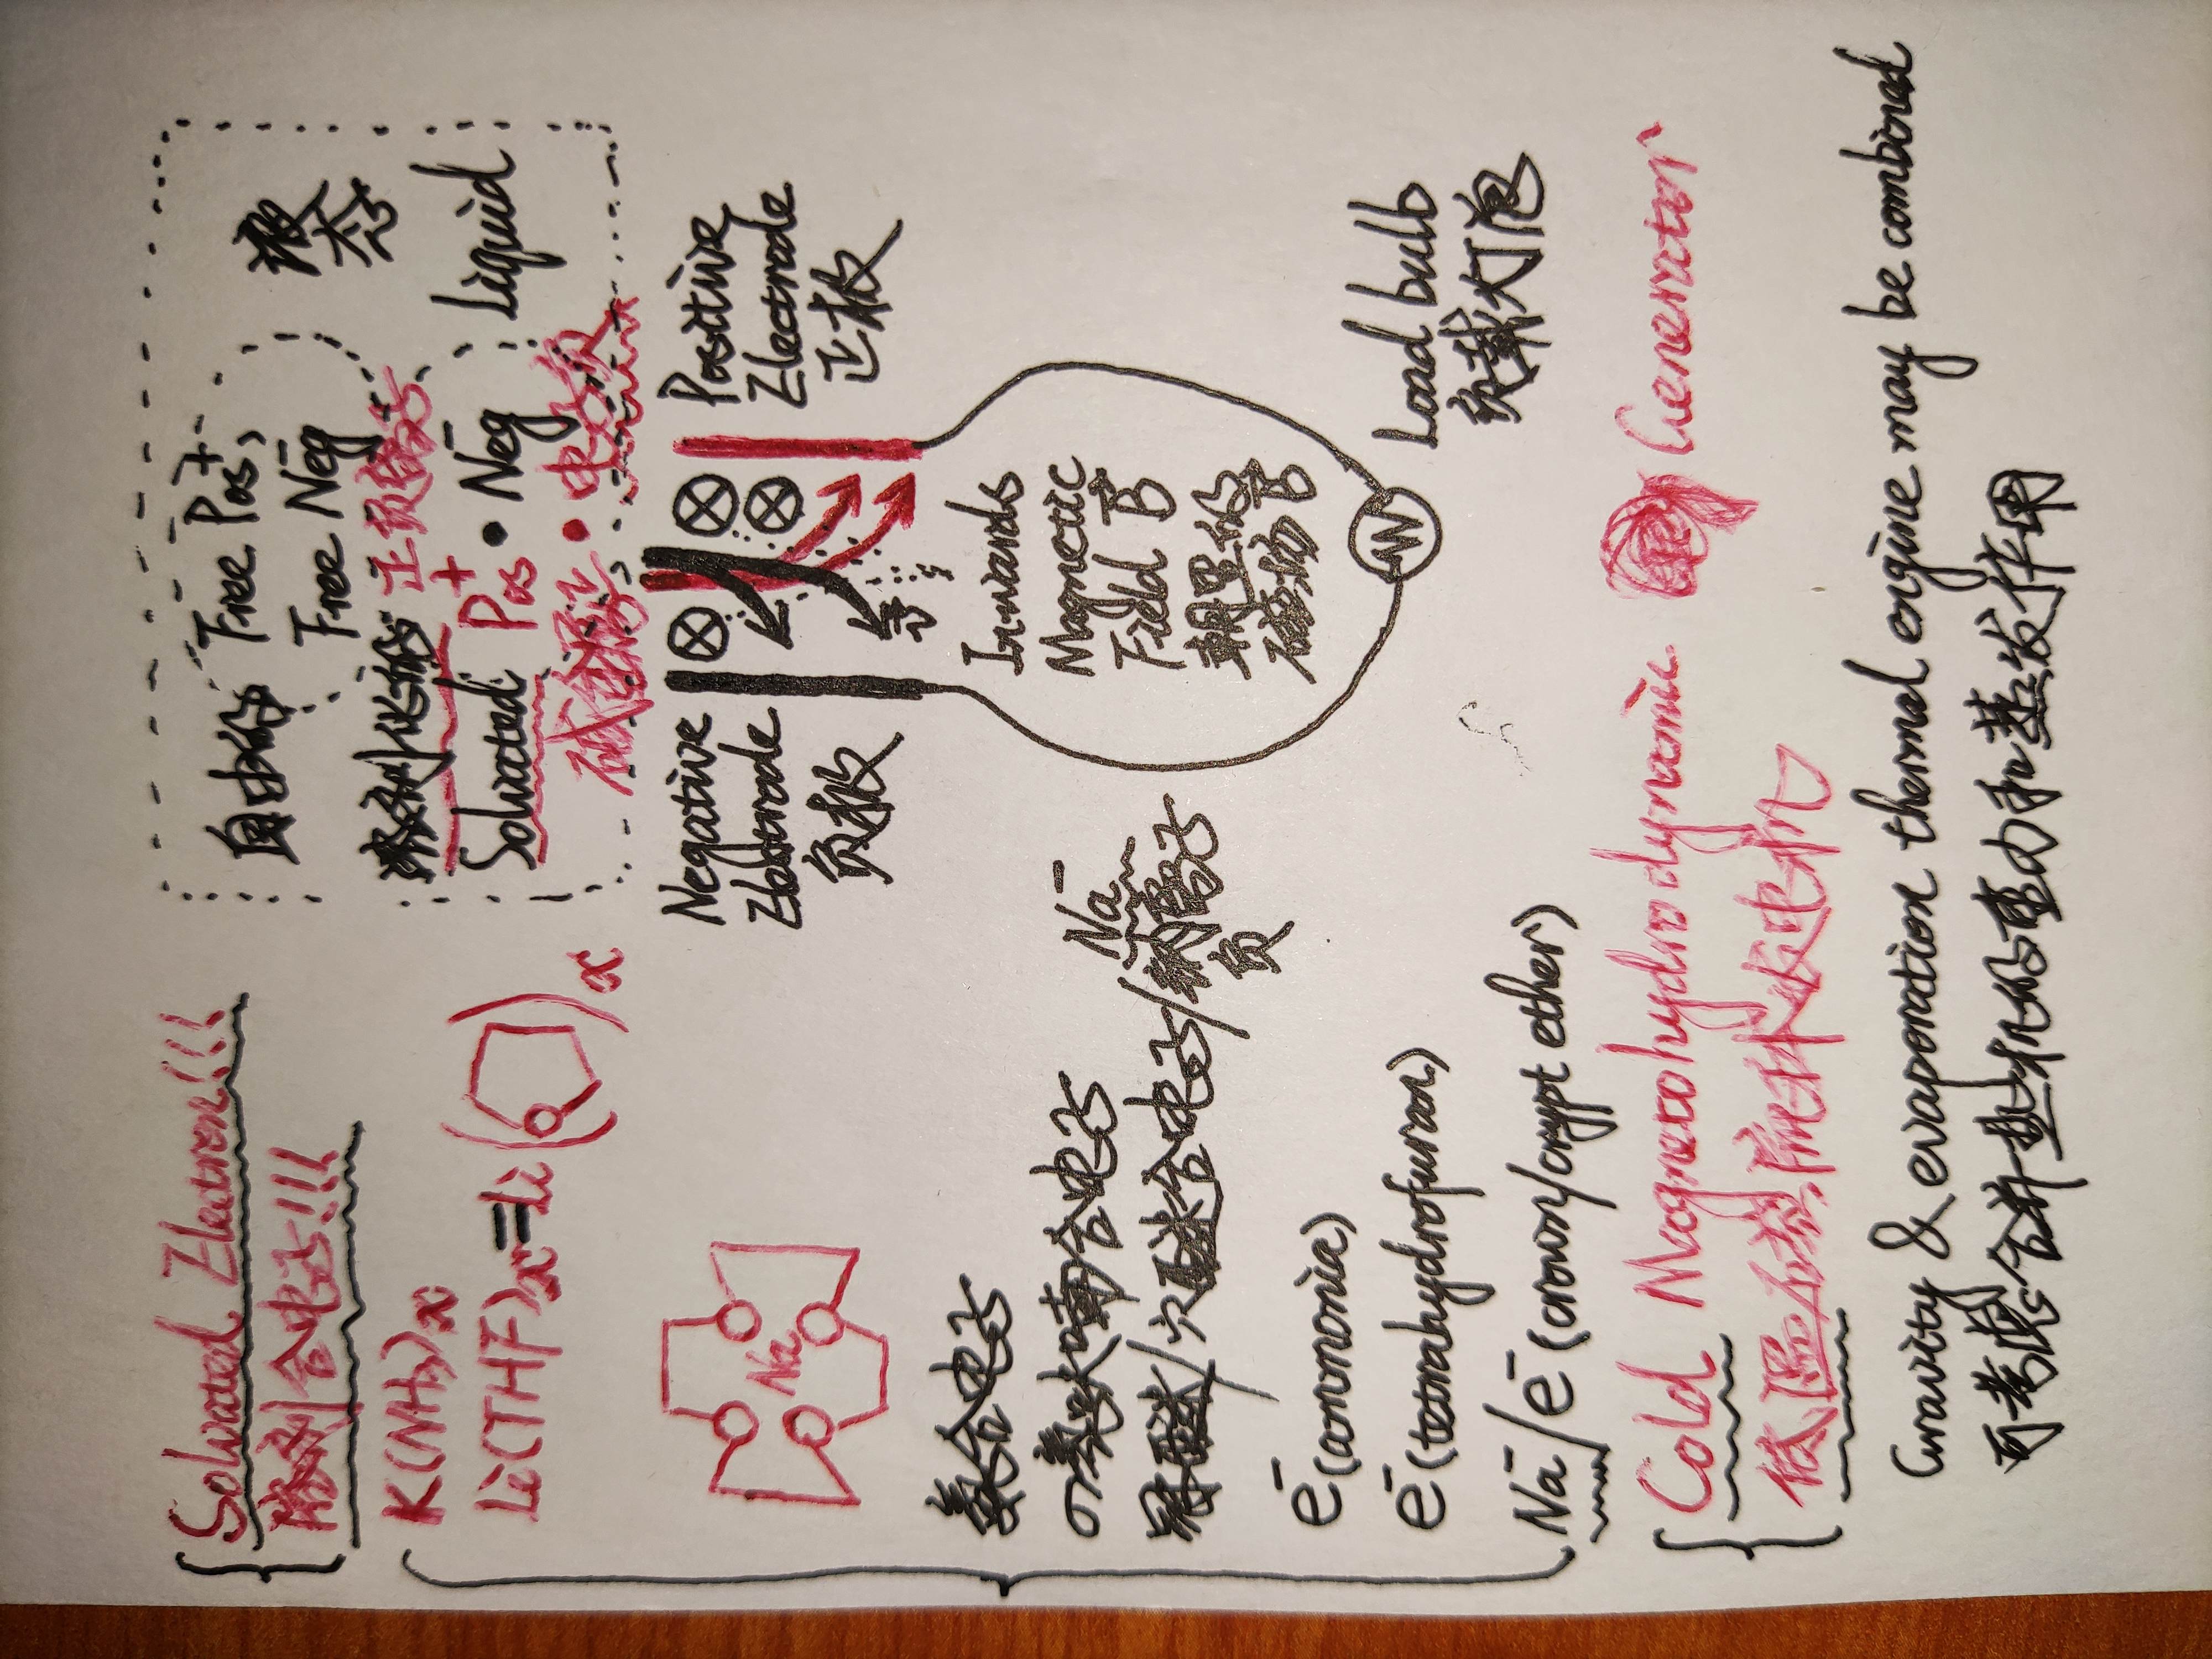 Solvated Electron!!!
溶剂合电子!!!
K(NH₃)x
Li(THF)x=Li( O )x
Na
氨合电子
四氢呋喃合电子
冠醚/穴醚合电子/钠负离子 Na⁻
e⁻(ammonia)
e⁻(tetrahydrofuran)
Na⁻/e⁻(crown/crypt ether)
自由的 Free Pos⁺,
Free Neg⁻
液态
Liquid
溶剂化的 正负离子
Solvated Pos⁺ • Neg⁻
碱金属 • 电子
Negative
Electrode
负极
Positive
Electrode
正极
Inwards
Magnetic
Field B
朝里的
磁场B
Load bulb
负载灯泡
Cold Magnetohydrodynamic Generator
低温磁流体发电机
Gravity & evaporation thermal engine may be combined
可考虑合并热机的重力和蒸发作用